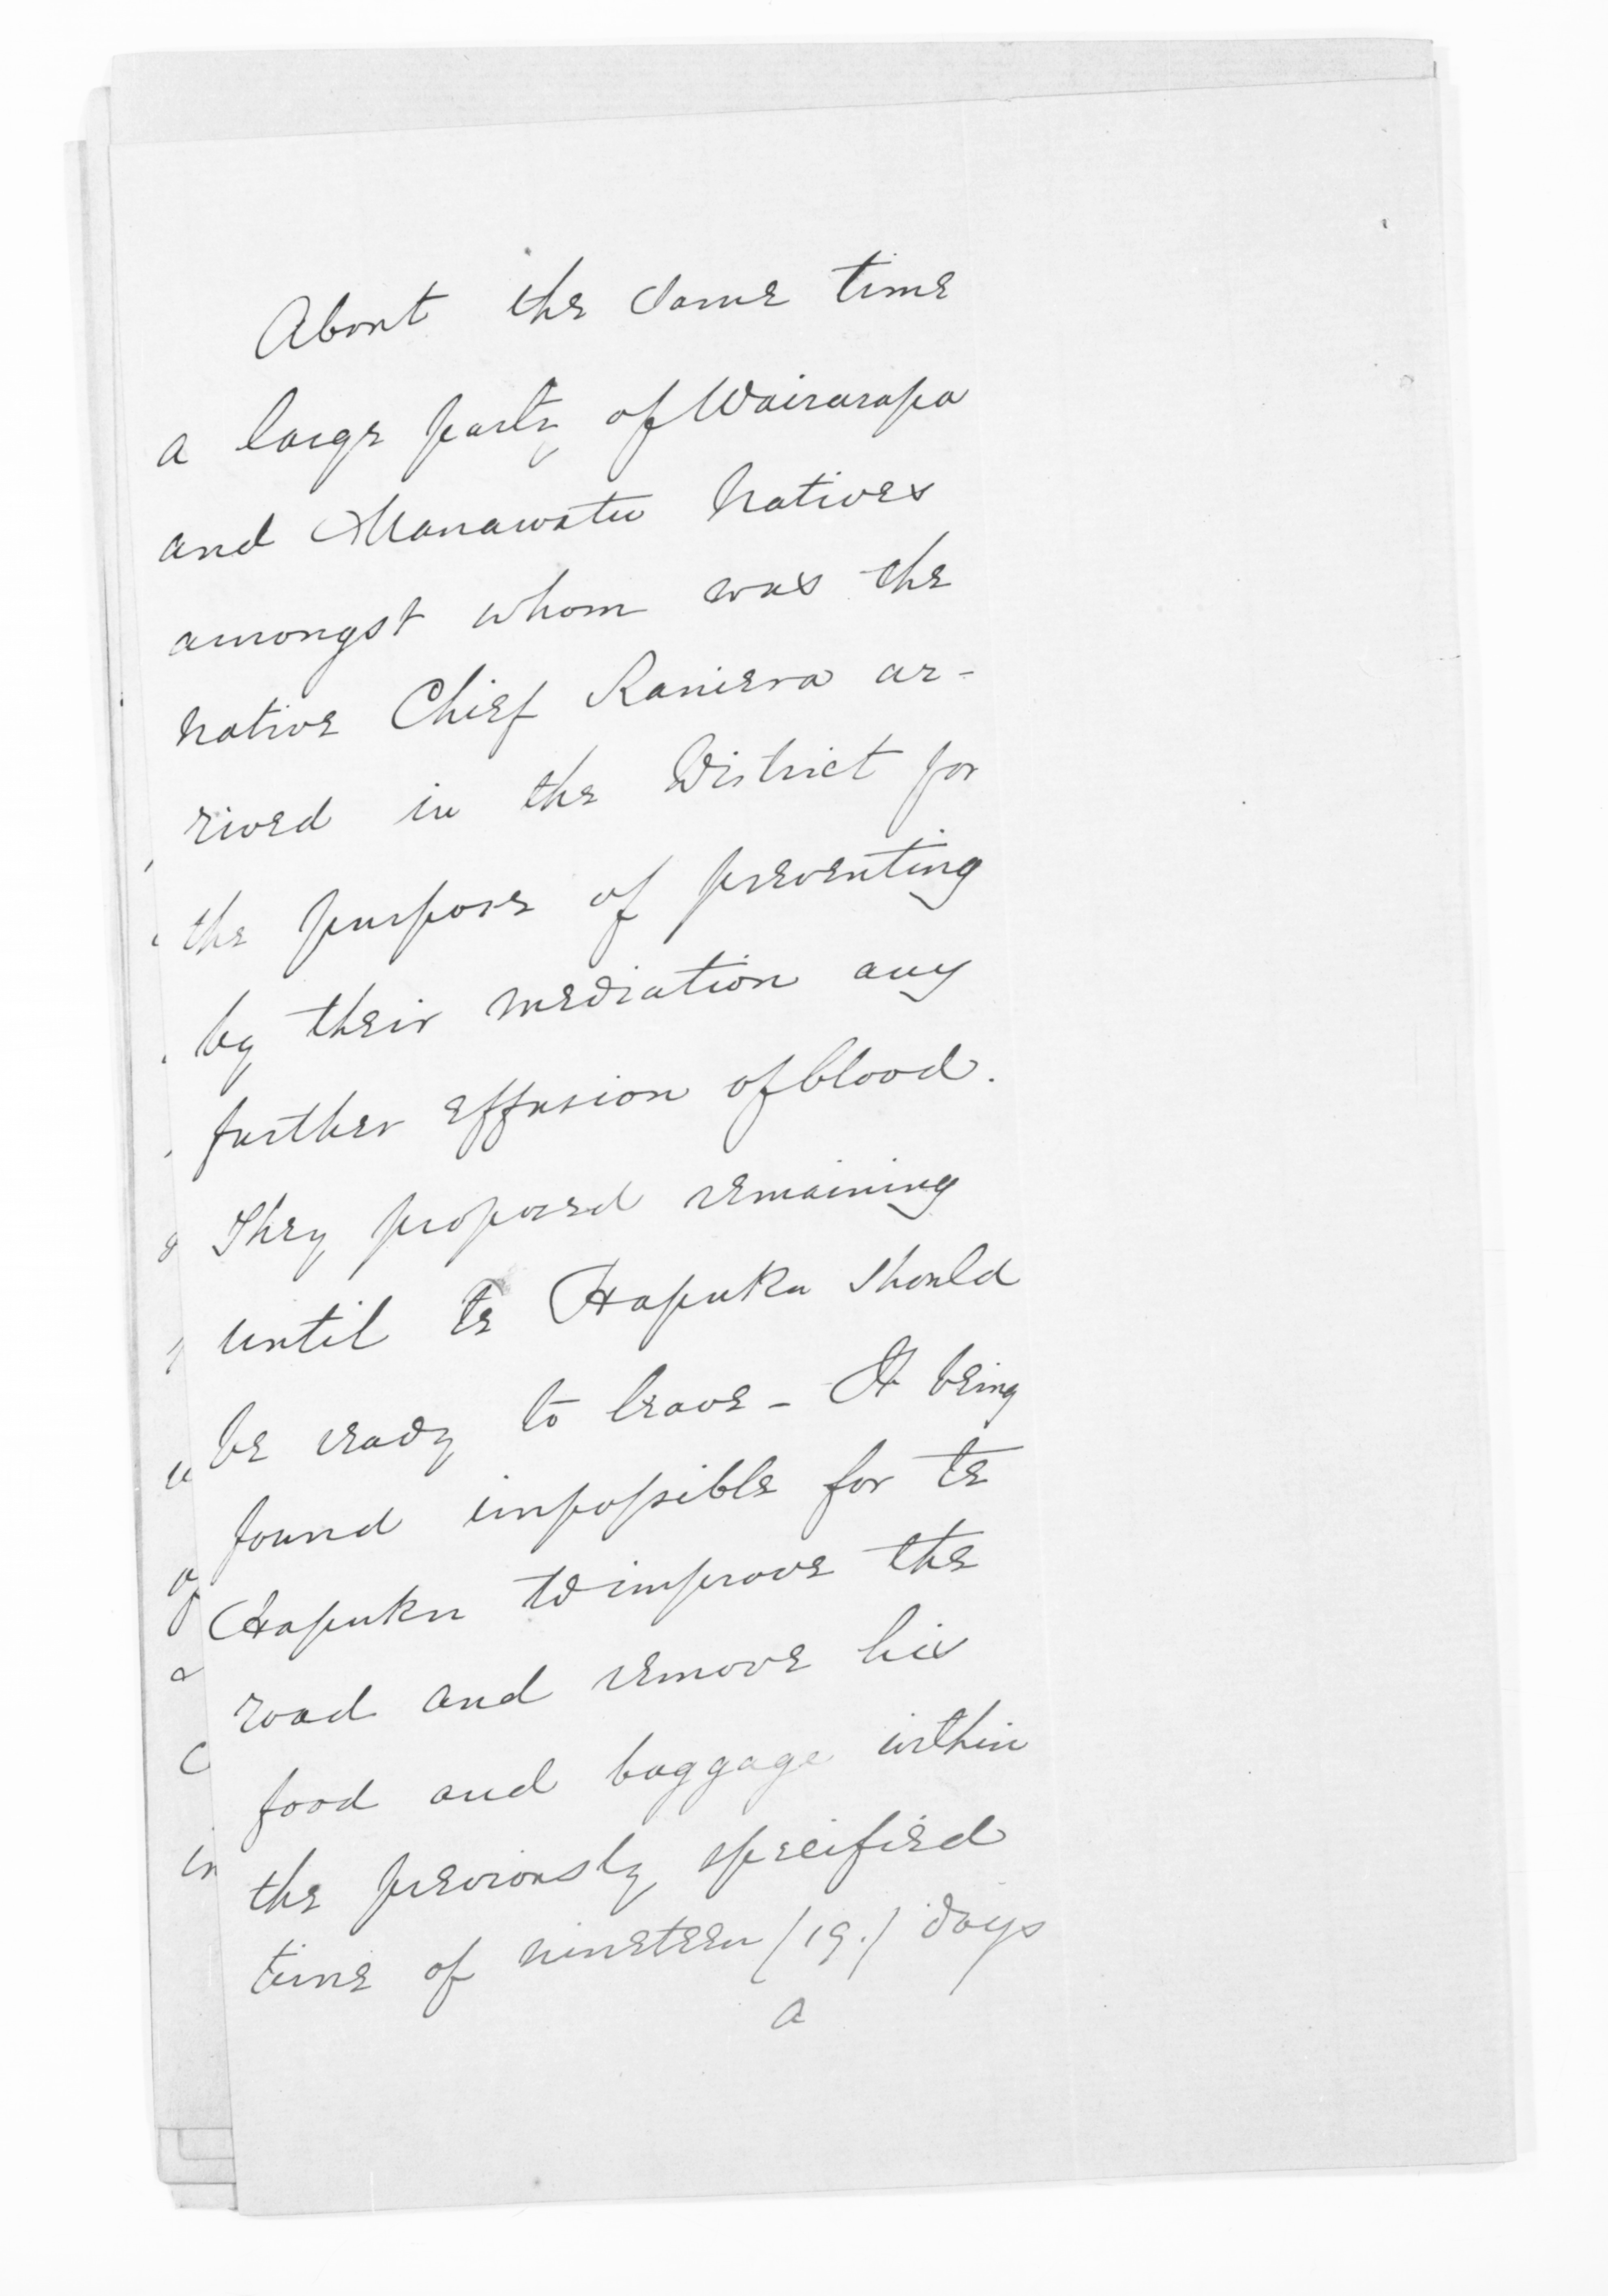 About the same time
a large party of Wairarapa
and Manawatu Natives
amongst whom was the
native Chief Raniera ar-
rived in the District for
the purpose of preventing
by their mediation any
further effusion of blood.
They proposed remaining
until Te Hapuku should
be ready to leave - It being
found impossible for Te
Hapuku to improve the
road and remove his
food and baggage within
the previously specified
time of nineteen (19.) days
a